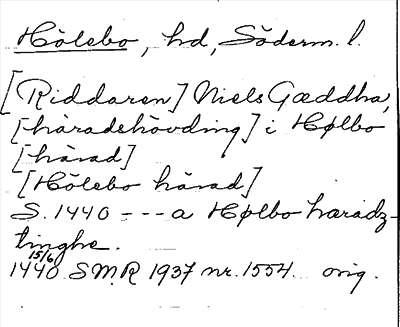 Hölebo, hd, Söderm. l.
[Riddaren] Niels Gæddha,
[häradshövding] i Hølbo
[härad]
[Hölebo härad]
S. 1440 --- a Hølbo hæradz-
tinghe.
15/6
1440 SMR 1937 nr. 1554. orig.